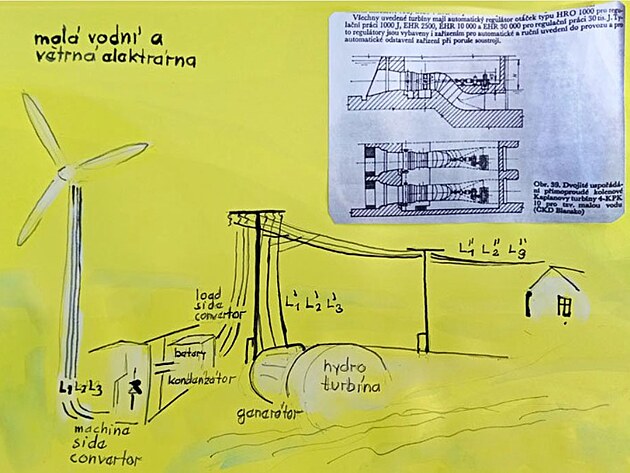 malá vodní a
větrná alaktrárna
Všechny uvedené turbíny mají automatický regulátor otáček typu HRO 1000 pro regu-
lační práci 1000 J, EHR 2500, EHR 10 000 a EHR 30 000 pro regulační práci 30
to regulátory jsou vybaveny i zařízením pro automatické a ruční uvedení do provozu a pro
automatické odstavení zařízení při poruše soustrojí.
Obr. 39. Dvojité uspořádá-
ní přímoproudé kolenové
Kaplanovy turbíny 4-KPK
10 pro tzv. malou vodu
(ČKD Blansko)
L₁ʺ L₂ʺ L₃ʺ
load
side
convartor
L₁ʹ L₂ʹ L₃ʹ
batary
kondanzátor
hydro
turbína
ganarátor
L₁ L₂ L₃
machina
sida
convartor